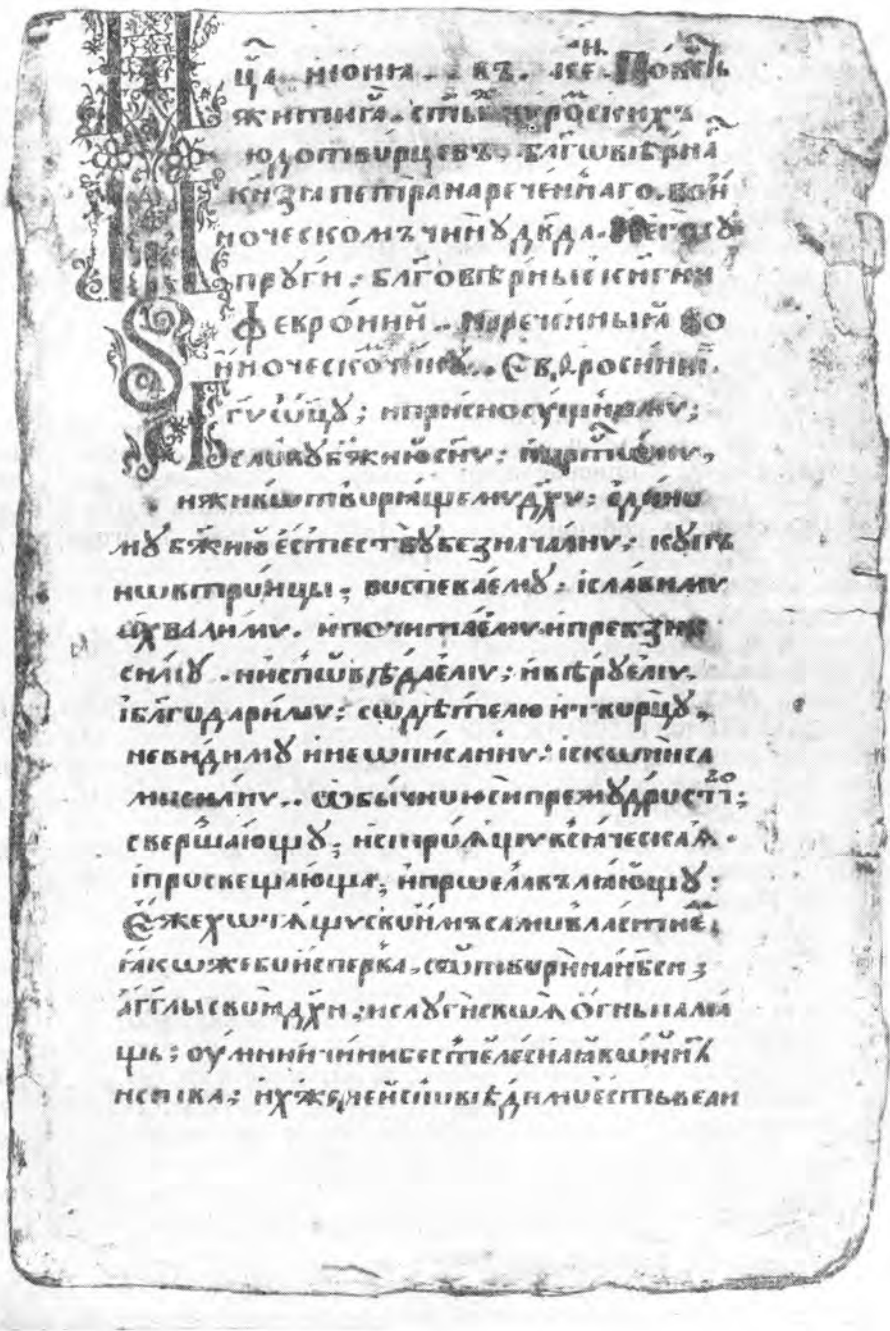 ца июніа въ ке повесть
житиа стых муроских
чюдотворцевъ благовернаг
кнзя петра нареченнаго во и
ноческомъ чинꙋ двда и его сꙋ
прꙋги благовѣрныіѧ кнгни
февроніи нареченныя во
иноческом чинꙋ евфросиніи
бгꙋ ѡцꙋ и присносꙋщнѡмꙋ
словꙋ бжию снꙋ
и животворящемꙋ дхꙋ единѡ
мꙋ бжию естествꙋ безначалнꙋ кꙋп
нѡ в троицы воспеваемꙋ і славимꙋ
и хвалимꙋ и почитаемꙋ и превозно
симꙋ и исповѣдаемꙋ и вѣрꙋемꙋ
і благодаримꙋ содѣтелю и творцꙋ
невидимꙋ и неѡписаннꙋ искони са
мосилнꙋ обычною си премꙋдростію
свершающꙋ и строящꙋ всяческая
і просвещающа и прославляющꙋ
еже хотящꙋ свои самовластие
якоже бо исперва сотвори на нбси
агглы своя дхи и слꙋги своя огнь паля
щь ꙋмнии чини бестелесная
их же неисповѣдимо есть вели